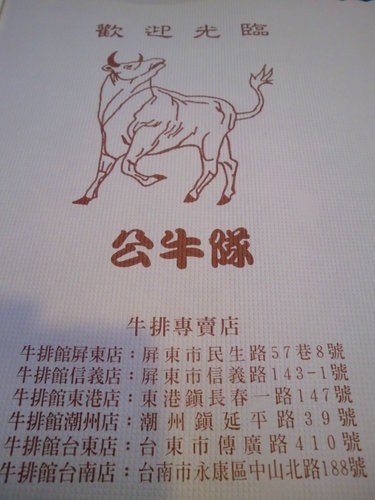 歡迎光臨
公牛隊
牛排專賣店
牛排館屏東店：屏東市民生路57巷8號
牛排館信義店：屏東市信義路143-1號
牛排館東港店：東港鎮長春一路147號
牛排館潮州店：潮州鎮延平路39號
牛排館台東店：台東市傳廣路410號
牛排館台南店：台南市永康區中山北路188號